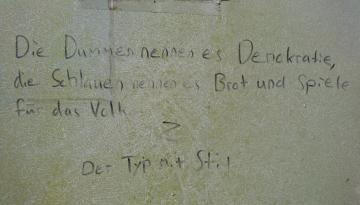 Die Dummen nennen es Demokratie,
die Schlauen nennen es Brot und Spiele
für das Volk
Der Typ mit Stil